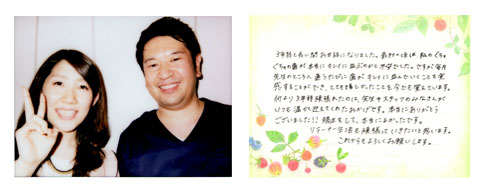 3年程と長い間お世話になりました。最初の頃は、私のぐちゃ
ぐちゃの歯が本当にキレイに並ぶのかと不安でした。ですが毎月
先生のところへ通うたびに歯がキレイに並んでいくことを実
感することができ、とても嬉しかったことを今でも覚えています。
何より3年程頑張れたのは、先生やスタッフのみなさんが
いつも温かく迎えてくれたおかげです。本当にありがとう
ございました!! 矯正をして、本当によかったです。
リテーナー生活も頑張っていきたいと思います。
これからもよろしくお願いします。